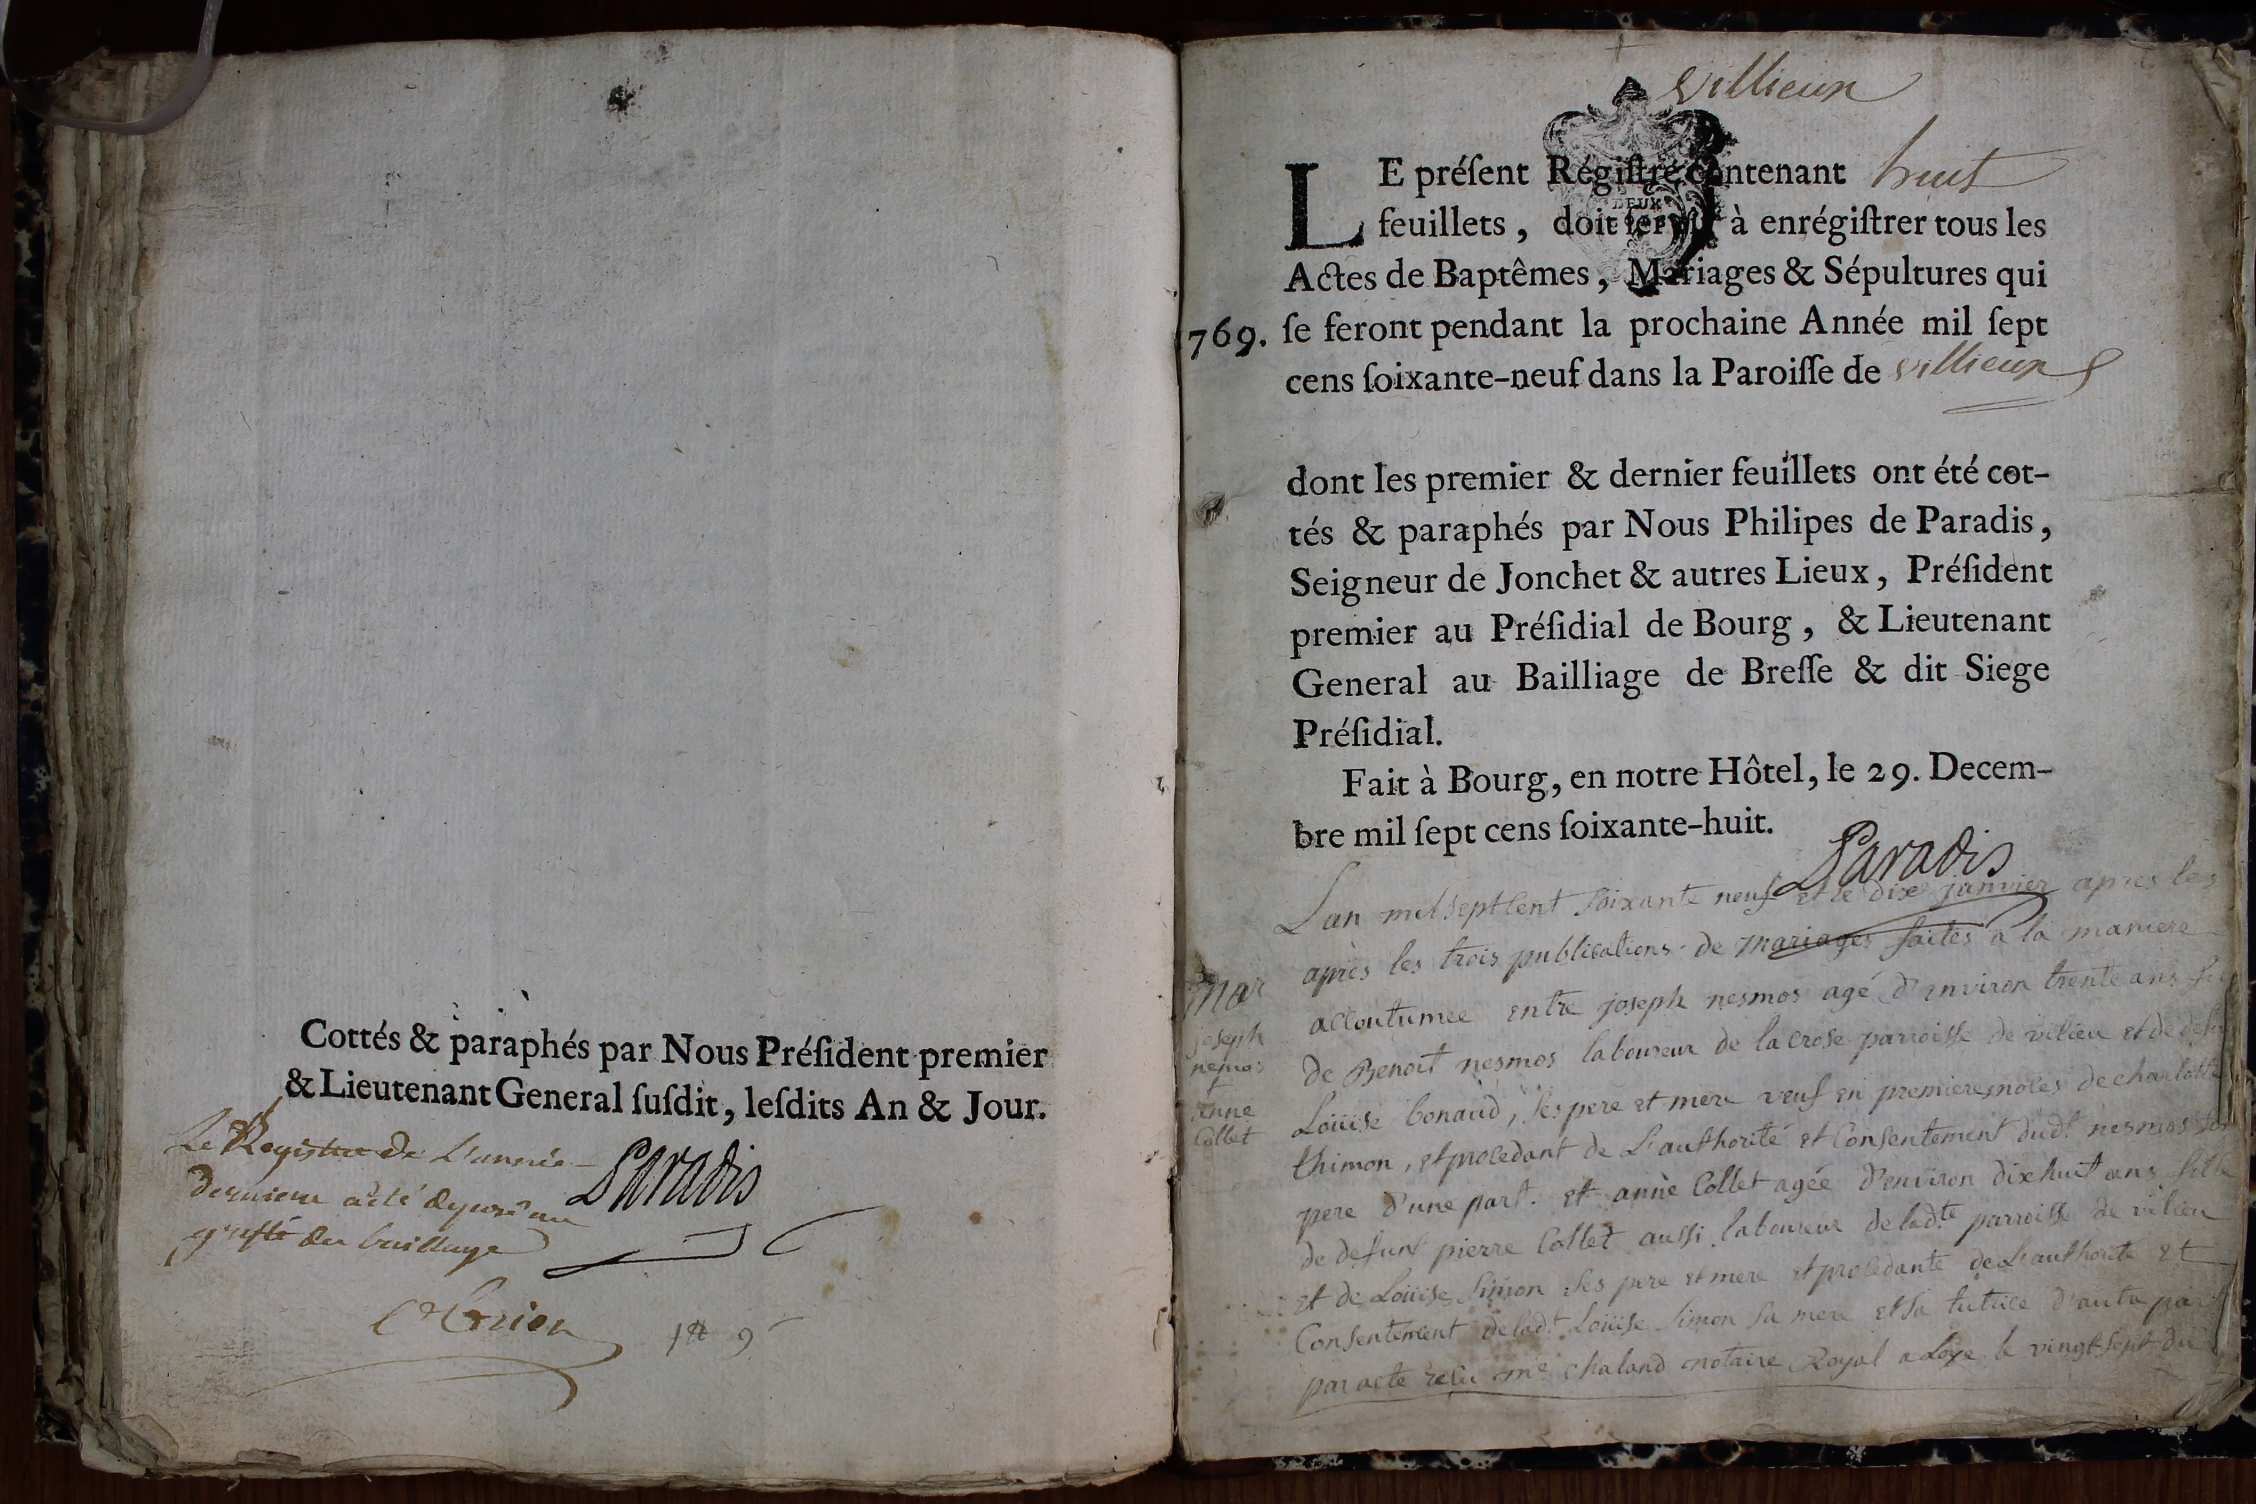 Cottés & paraphés par Nous Préſident premier
& Lieutenant General ſuſdit, leſdits An & Jour.
Le Registre de L'année
derniere a été deposé au
greffe du bailliage
Paradis
1# 9
villieux
LE préſent Régiſtre contenant huit
feuillets, doit ſervir à enrégiſtrer tous les
Actes de Baptêmes, Mariages & Sépultures qui
769. ſe feront pendant la prochaine Année mil ſept
cens ſoixante-neuf dans la Paroiſſe de villieux
dont les premier & dernier feuillets ont été cot-
tés & paraphés par Nous Philipes de Paradis,
Seigneur de Jonchet & autres Lieux, Préſident
premier au Préſidial de Bourg, & Lieutenant
General au Bailliage de Breſſe & dit Siege
Préſidial.
Fait à Bourg, en notre Hôtel, le 29. Decem-
bre mil ſept cens ſoixante-huit.
Paradis
DEUX
Mar
joseph
nesmos
et
anne
Collet
L'an mil sept cent soixante neuf et le dix janvier apres les
après les trois publications de mariages faites a la maniere
accoutumee entre joseph nesmos agé d'environ trente ans
de Benoit nesmos laboureur de la crose parroisse de vilieu et de
Louise bonard, ses pere et mere veuf en premieres noces de charlotte
thimon, et procedant de L'authorité et Consentement dudt nesmos son
pere d'une part. et anne Collet agée d'environ dixhuit ans fille
de defunt pierre Collet aussi laboureur de ladte parroisse de vilieu
et de Louise simon ses pere et mere et procedante de L'authorité et
Consentement de ladte Louise simon sa mere et sa tutrice d'autre part
par acte reçu me chaland notaire Royal a Loye le vingt sept du